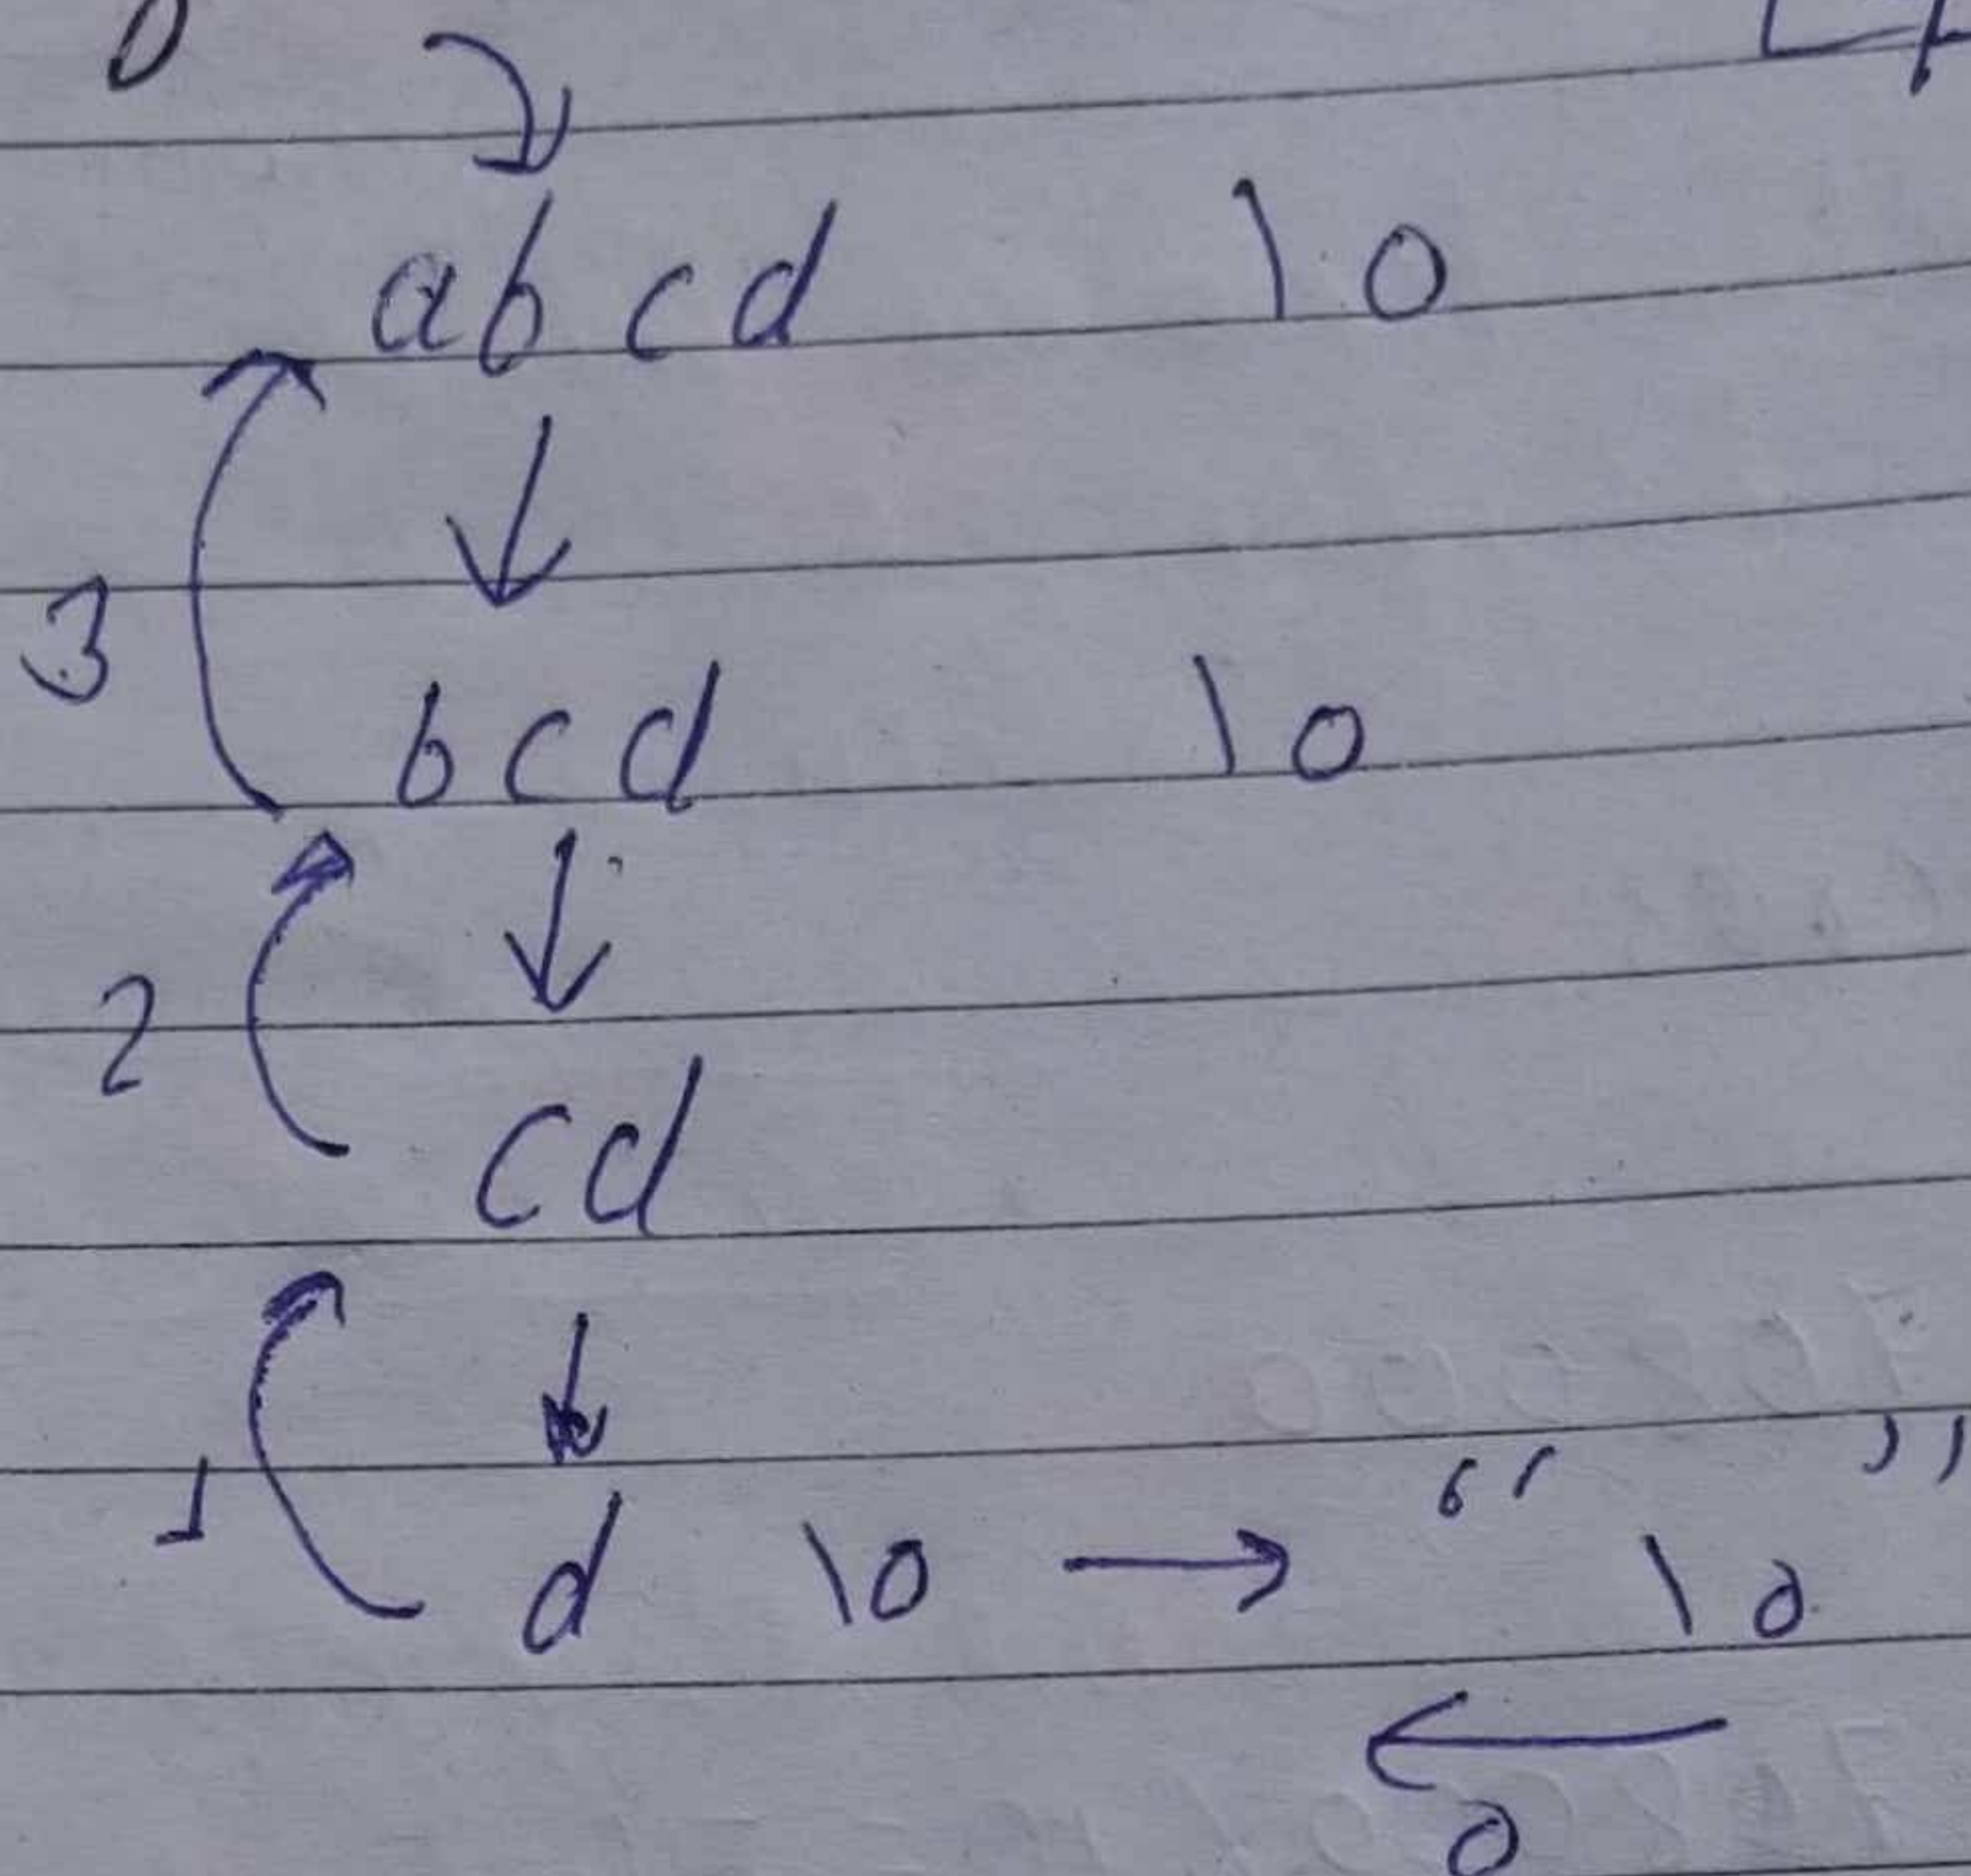 abcd \0
3
bcd \0
2
cd
1
d \0 → “ \0 ”
←
0